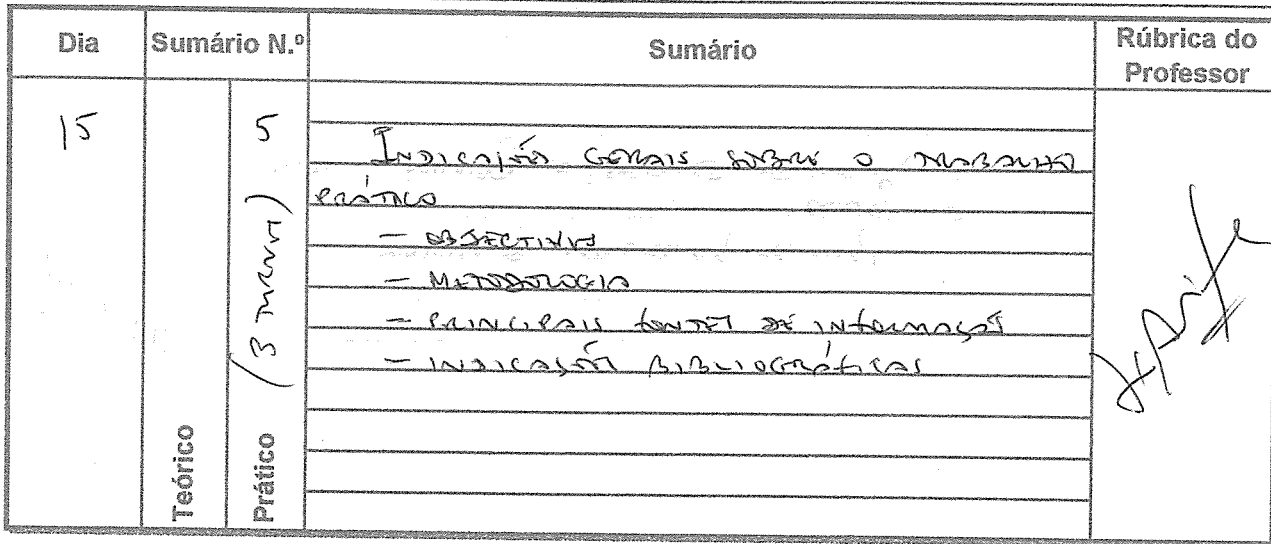 Dia
Sumário N.º
Sumário
Rúbrica do
Professor
15
Teórico
Prático
5
(3
INDICAÇÕES GERAIS SOBRE O TRABALHO
PRÁTICO
- OBJECTIVOS
- METODOLOGIA
- PRINCIPAIS FONTES DE INFORMAÇÃO
- INDICAÇÕES BIBLIOGRÁFICAS